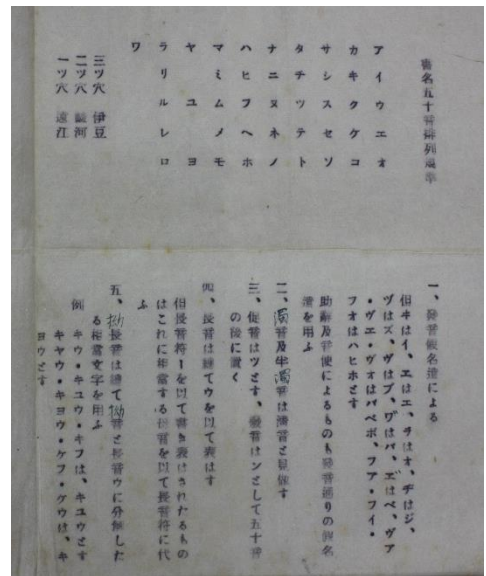 書名五十音排列
ア イ ウ エ オ
カ キ ク ケ コ
サ シ ス セ ソ
タ チ ツ テ ト
ナ ニ ヌ ネ ノ
ハ ヒ フ ヘ ホ
マ ミ ム メ モ
ヤ ユ ヨ
ラ リ ル レ ロ
ワ
三ツ穴 伊豆
二ツ穴 駿河
一ツ穴 遠江
一、發音假名遣による
但ヰはイ、ヱはエ、ヲはオ、ヂはジ、
ヅはズ、ヴはブ、ヷはバ、ヹはベ、ヴア
・ヴエ・ヴオはバベボ、フア・フイ・
フオはハヒホとす
助辭及音便によるものも發音通りの假名
遣を用ふ
二、濁音及半濁音は淸音と見做す
三、促音はツとす、撥音はンとして五十音
の後に置く
四、長音は總てウを以て表はす
但長音符ーを以て書き表はされたるもの
はこれに相當する母音を以て長音符に代
ふ
五、拗長音は總て拗音と長音ウに分解した
る相當文字を用ふ
例 キウ・キユウ・キフは、キユウとす
キヤウ・キヨウ・ケフ・ケウは、キ
ヨウとす